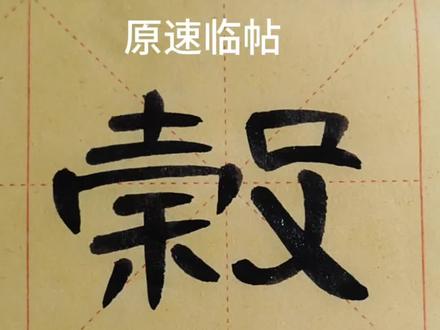 原速临帖
穀